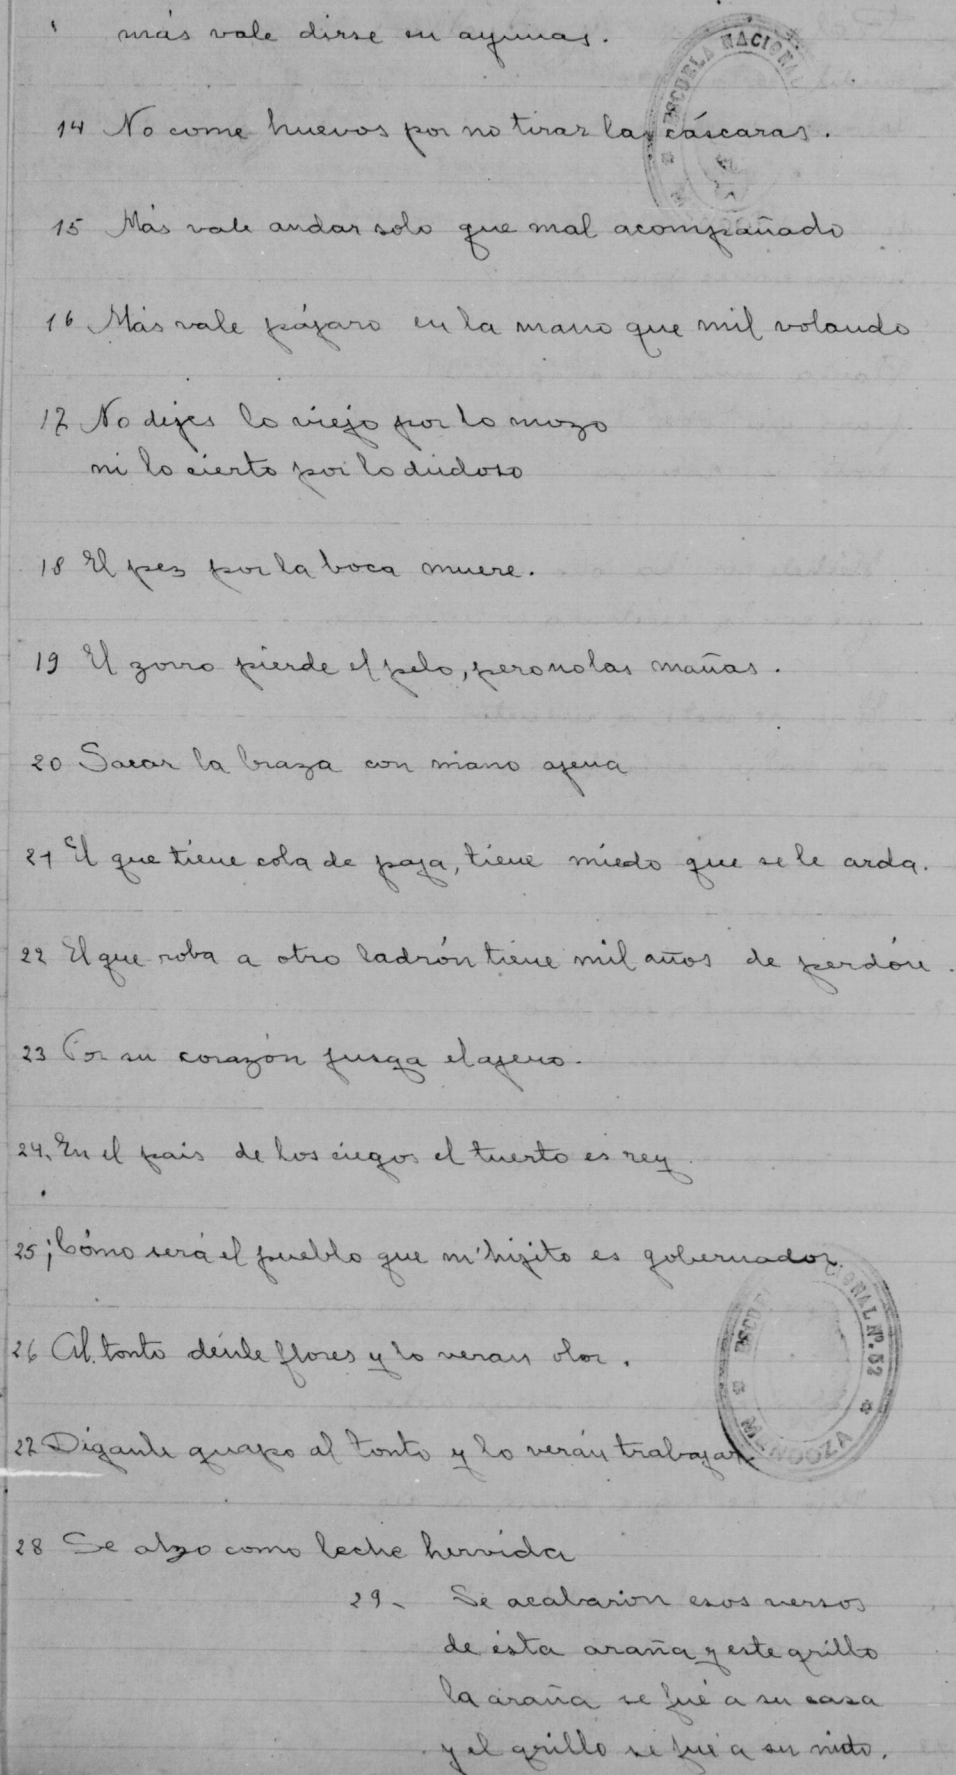 más vale dirse en ayunas.
ESCUELA NACIONAL
14 No come huevos por no tirar las cáscaras.
15 Más vale andar solo que mal acompañado
16 Más vale pájaro en la mano que mil volando
17 No dejes lo viejo por lo mozo
ni lo cierto por lo dudoso
18 El pez por la boca muere.
19 El zorro pierde el pelo, pero no las mañas.
20 Sacar la braza con mano ajena
21 El que tiene cola de paja, tiene miedo que se le arda.
22 El que roba a otro ladrón tiene mil años de perdón.
23 Por su corazón jusga el ajeno.
24. En el pais de los ciegos el tuerto es rey.
25 ¡Cómo será el pueblo que m'hijito es gobernador
26 Al tonto dénle flores y lo veran oler.
27 Diganle guapo al tonto y lo verán trabajar.
28 Se alzo como leche hervida
29- Se acabaron esos versos
de ésta araña y este grillo
la araña se fué a su casa
y el grillo se fué a su nido.
Nº. 52
MENDOZA